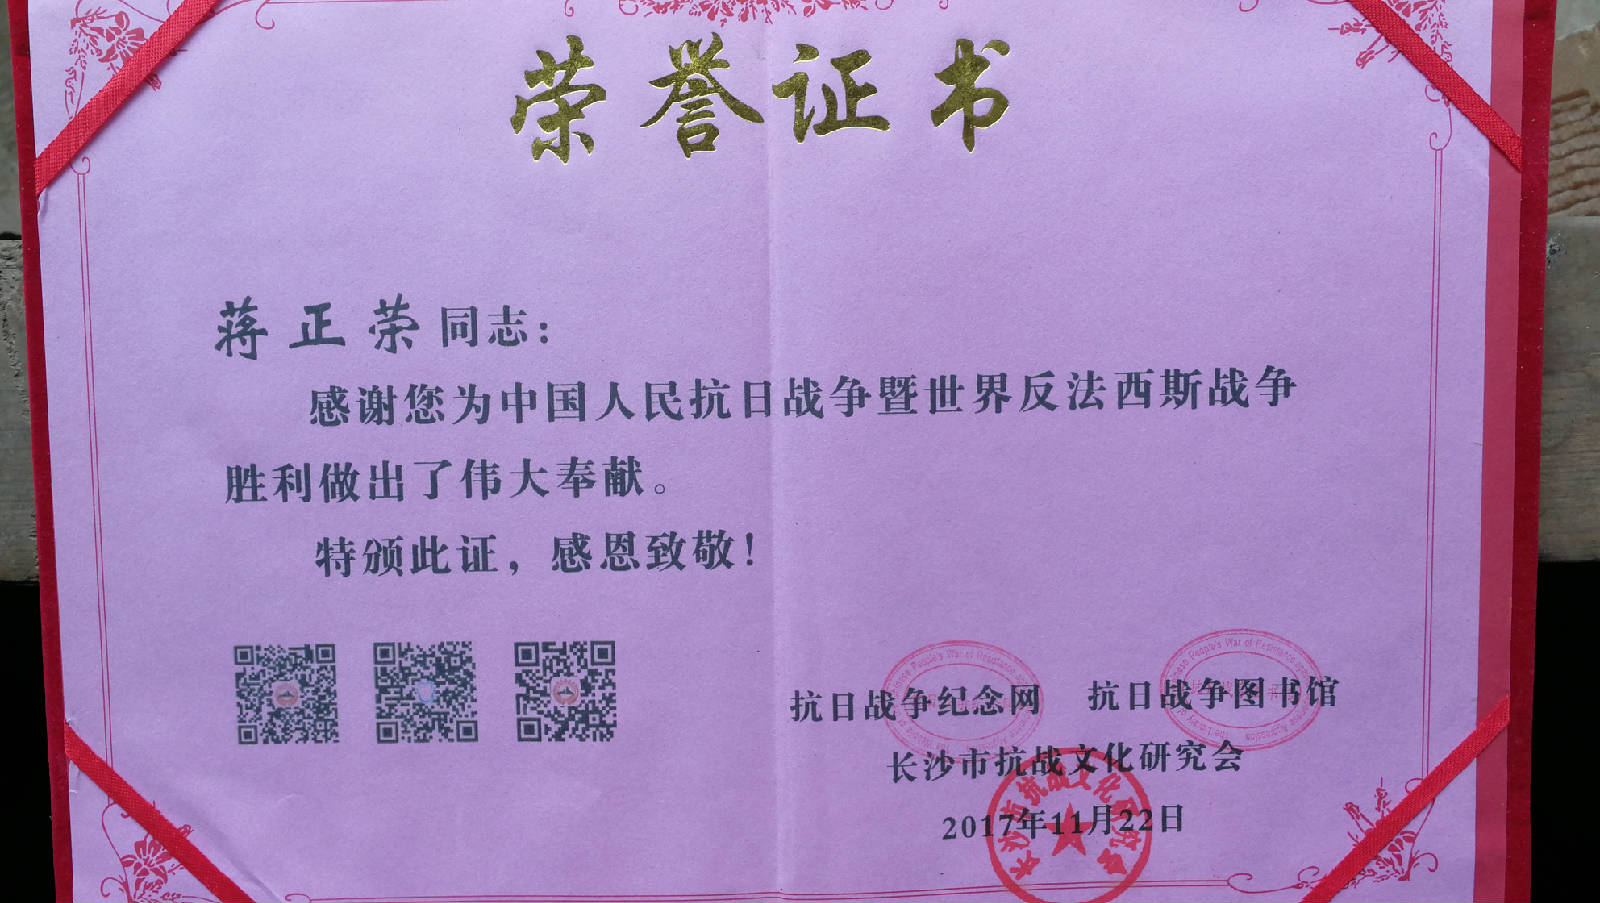 荣誉证书
蒋正荣同志：
感谢您为中国人民抗日战争暨世界反法西斯战争
胜利做出了伟大奉献。
特颁此证，感恩致敬！
抗日战争纪念网 抗日战争图书馆
长沙市抗战文化研究会
2017年11月22日
长沙市抗战文化研究会